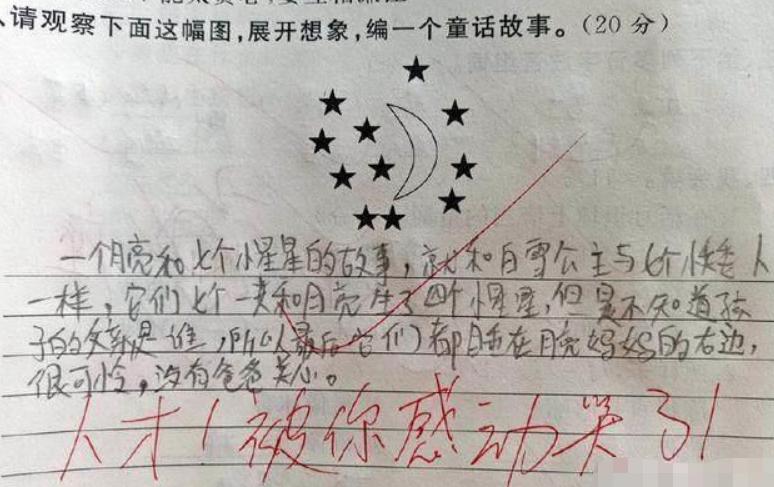 请观察下面这幅图,展开想象,编一个童话故事。(20分)
一个月亮和七个小星星的故事,就和白雪公主与七个小矮人
一样,它们七个一来和月亮生了四个小星星,但是不知道孩
子的父亲是谁,所以最后它们都睡在月亮妈妈的右边,
很可怜,没有爸爸关心。
人才!被你感动哭了!